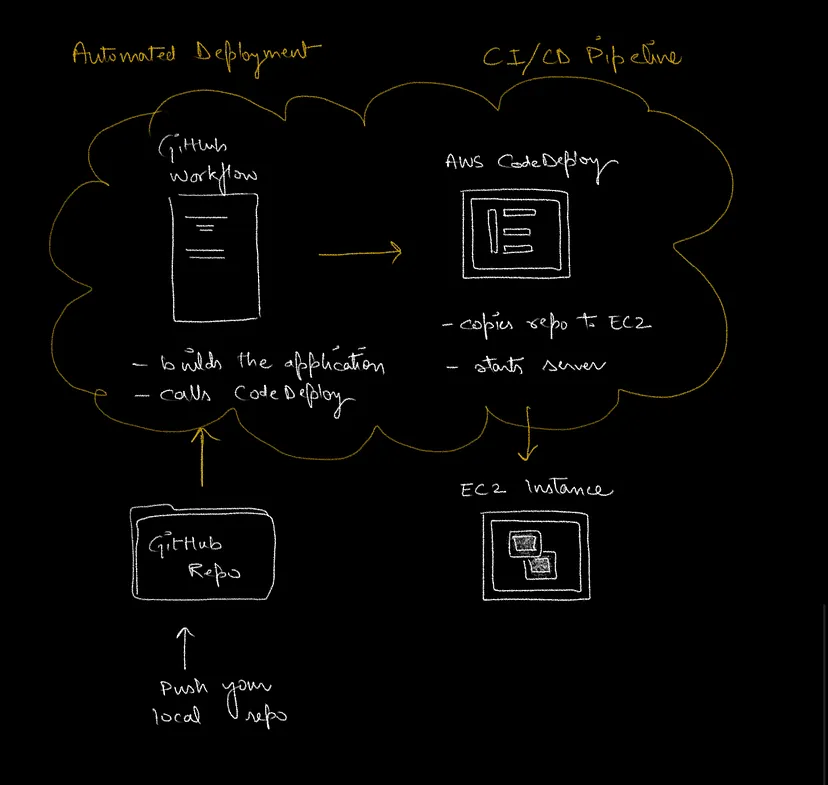 Automated Deployment
CI/CD Pipeline
GitHub
Workflow
AWS CodeDeploy
- builds the application
- calls CodeDeploy
- copies repo to EC2
- starts server
EC2 Instance
GitHub
Repo
Push your
local repo